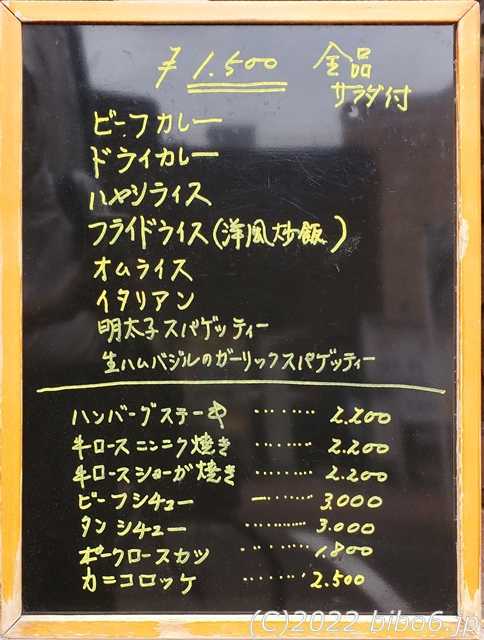 ¥1.500 全品
サラダ付
ビーフカレー
ドライカレー
ハヤシライス
フライドライス(洋風炒飯)
オムライス
イタリアン
明太子スパゲッティー
生ハムバジルのガーリックスパゲッティー
ハンバーグステーキ ……… 2.200
牛ロースニンニク焼き ……… 2.200
牛ロースショーが焼き ……… 2.200
ビーフシチュー ……… 3.000
タンシチュー ……… 3.000
ポークロースカツ ……… 1.800
カニコロッケ ……… 2.500
(C)2022 bibo6.jp